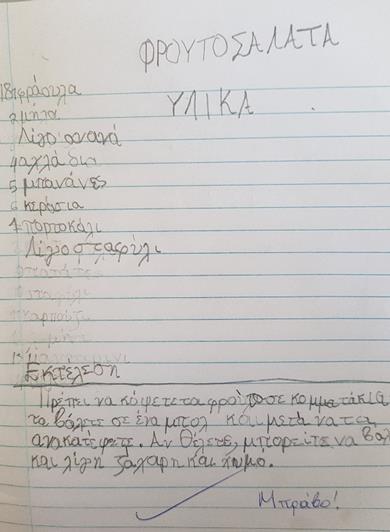 ΦΡΟΥΤΟΣΑΛΑΤΑ
ΥΛΙΚΑ
18 φράουλα
2 μήλα
Λίγο ανανά
4 αχλάδια
5 μπανάνες
6 κεράσια
7 πορτοκάλι
Λίγιο σταφύλι
καρπούζι
Εκτέλεση
Πρέπει να κόψετε τα φρούτο σε κομματάκια
τα βάλετε σε ένα μπολ και μετά να τα
ανακατέψετε. Αν θέλετε, μπορείτε να βαλ
και λίγη ζάχαρη και χυμό.
Μπράβο!